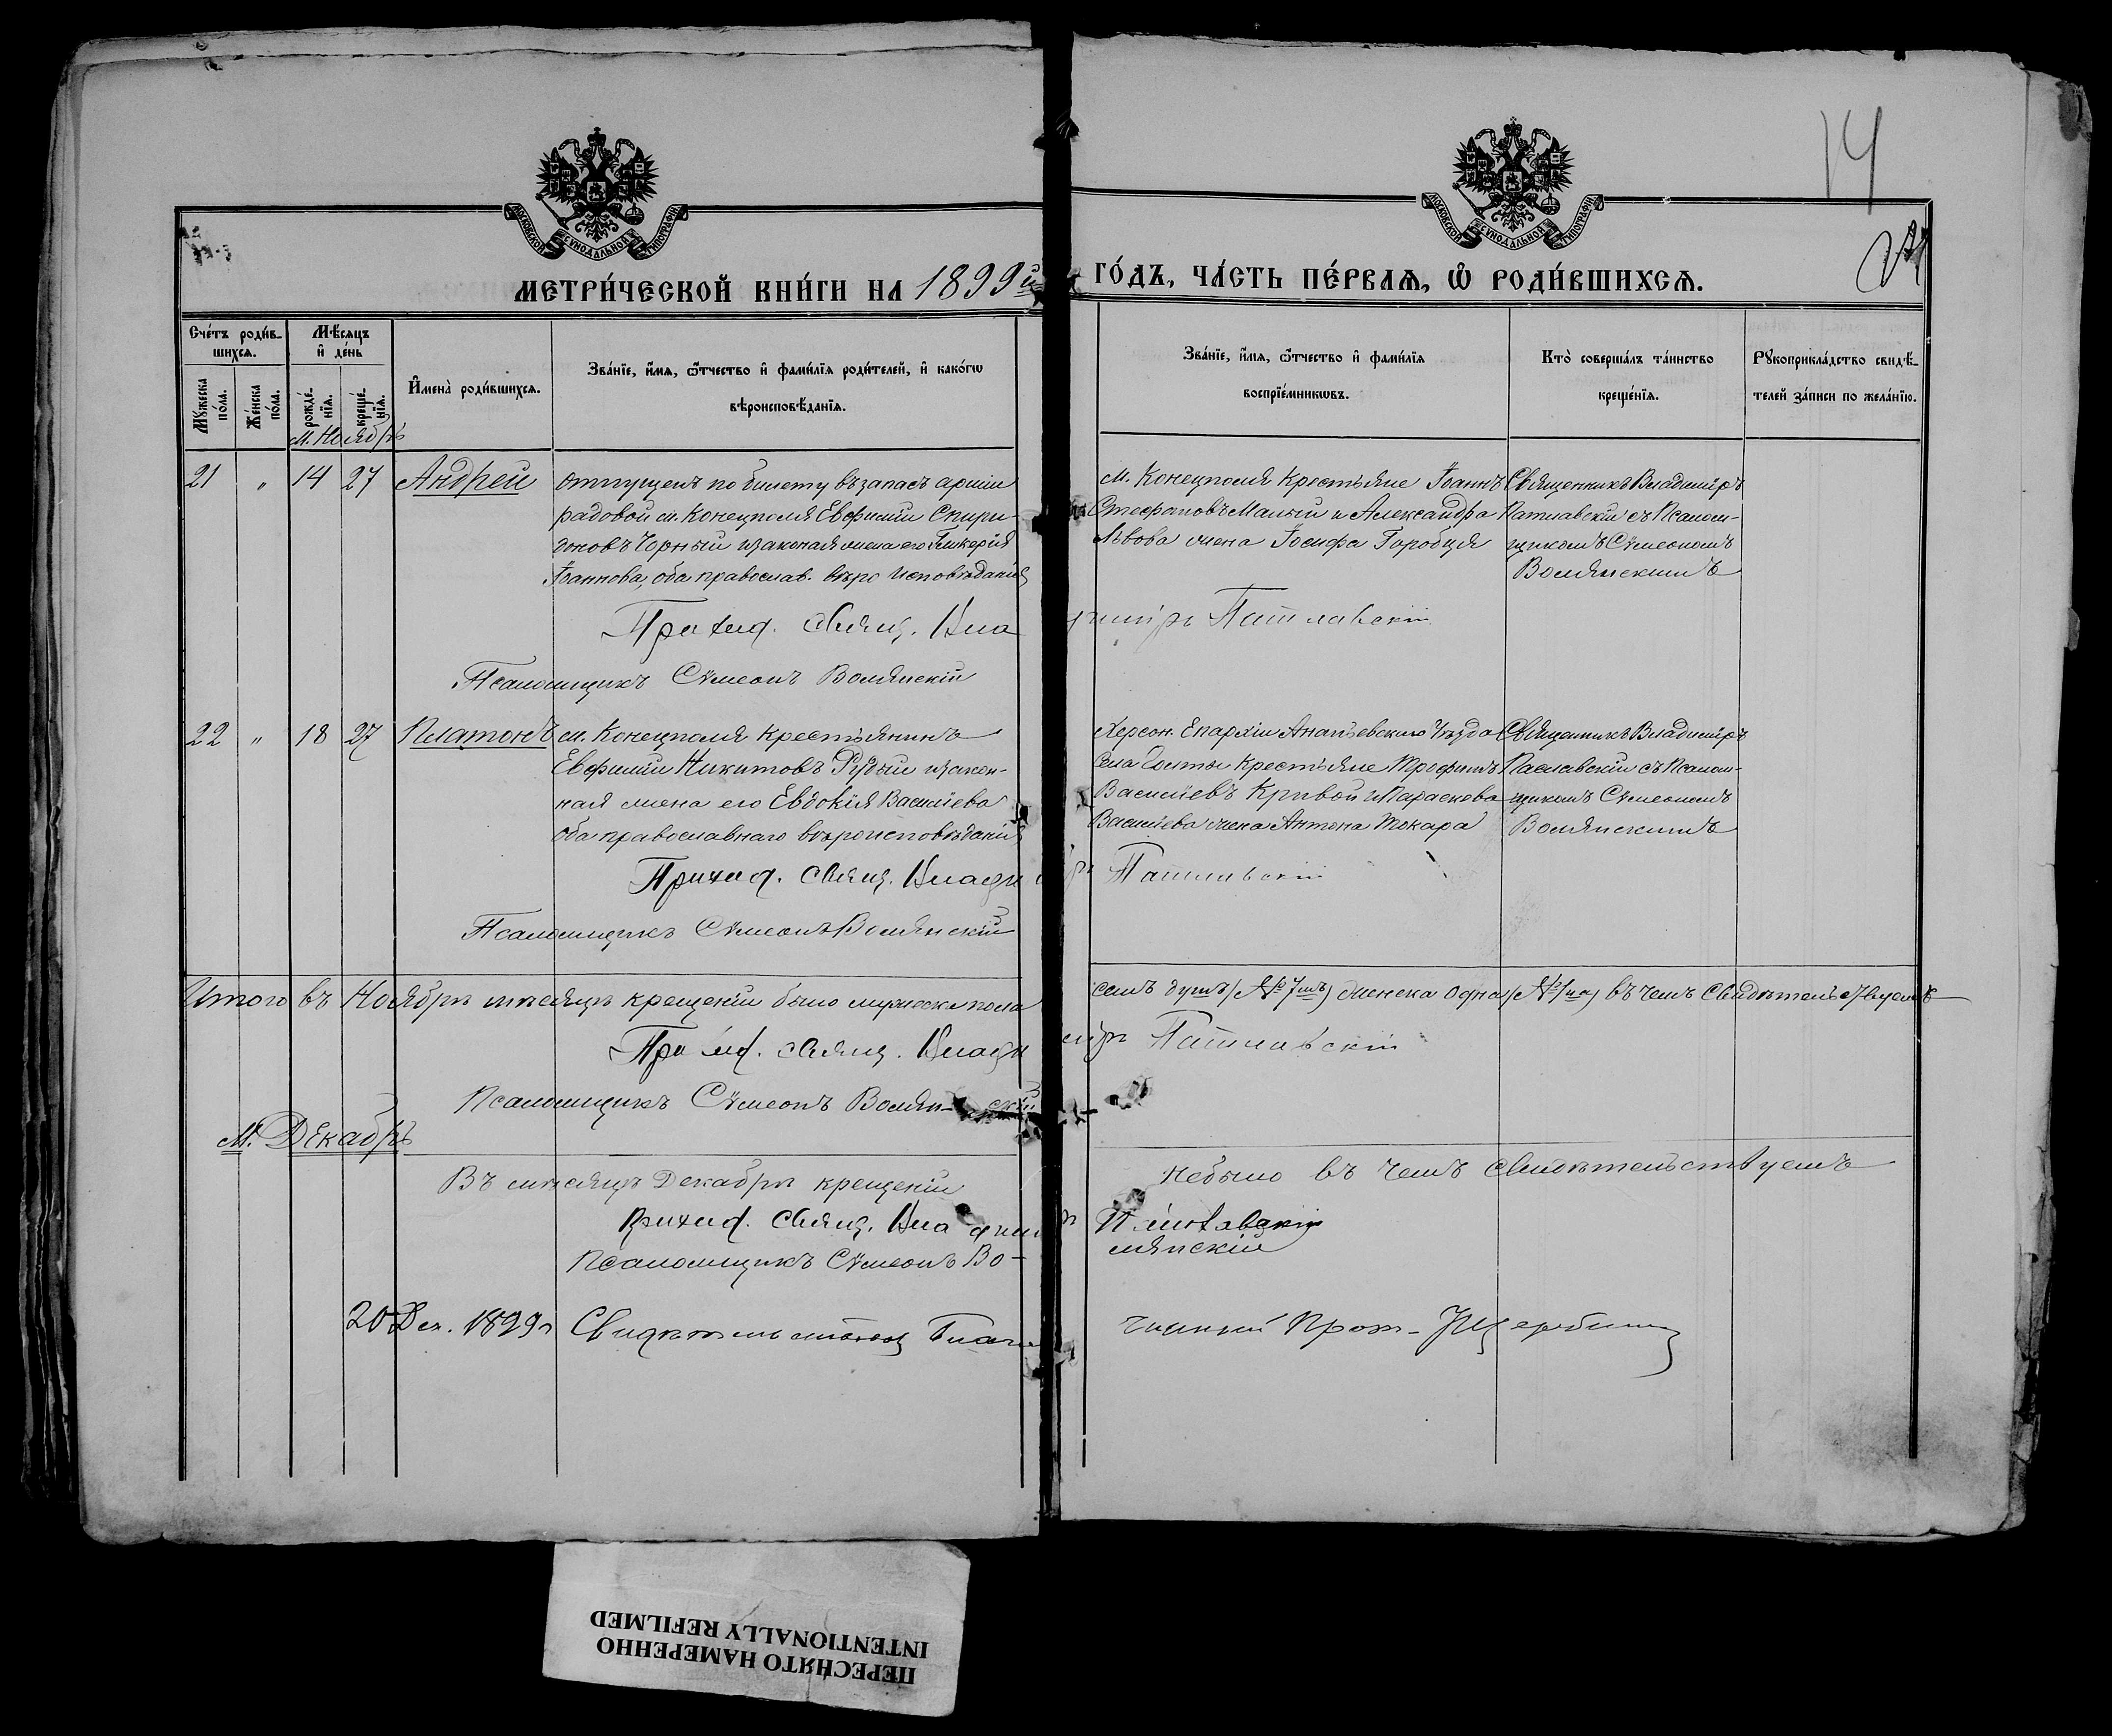 14
МОСКОВСКОЙ СУНОДАЛЬНОЙ ТИПОГРАФІИ
МОСКОВСКОЙ СУНОДАЛЬНОЙ ТИПОГРАФІИ
МЕТРИ́ЧЕСКОЙ КНИ́ГИ НА 1899й ГО́ДЪ, ЧА́СТЬ ПЕ́РВАѦ, Ѽ РОДИ́ВШИХСѦ.
Сче́тъ роди́в-
шихсѧ.
Мꙋжеска
по́ла.
Же́нска
по́ла.
Мѣ́сѧцъ
и҆ де́нь
рожде́-
нїѧ.
креще-
нїѧ.
И҆мена̀ роди́вшихсѧ.
Зва́нїе, и҆́мѧ, ѻ҆́тчество и҆ фами́лїѧ роди́телей, и҆ како́гѡ
вѣроисповѣ́данїѧ.
Зва́нїе, и҆́мѧ, ѻ҆́тчество и҆ фами́лїѧ
воспрїе́мникѡвъ.
Кто̀ соверша́лъ та́инство
креще́нїѧ.
Рꙋкоприкла́дство свидѣ́-
телей за́писи по жела́нїю.
м. Ноябрь
21 " 14 27 Андрей
Отпущенъ по билету въ запасъ арміи
рядовой м. Конецполя Евфимій Спири-
доновъ Чорный и законая жена его Гликерія
Іоаннова, оба православ. вѣро исповѣданія
м. Конецполя Крестьяне Іоаннъ
Стефановъ Малый и Александра
Львова жена Іосифа Горобця
Священникъ Владиміръ
Патлавскій съ Псалом-
щикомъ Сѵмеономъ
Волянскимъ
Приход. Свящ. Владиміръ Патлавскій
Псаломщикъ Сѵмеонъ Волянскій
22 " 18 27 Платонъ
м. Конецполя крестьянинъ
Евфимій Никитовъ Рудый и закон-
ная жена его Евдокія Василіева
оба православнаго вѣроисповѣданія
Херсон. Епархіи Ананьевского Уѣзда
Села крестьяне Трофимъ
Василіевъ Кривой и Параскева
Василіева жена Антона Токара
Священникъ Владиміръ
Патлавскій съ Псалом-
щикомъ Сѵмеономъ
Волянскимъ
Приход. Свящ. Владиміръ Патлавскій
Псаломщикъ Сѵмеонъ Волянскій
Итого въ Ноябрѣ мѣсяцѣ крещеній было мужеска пола семь душъ (№ 7мъ) женска одна (№ 1на) въ чемъ Свидѣтельствуемъ
Приход. Свящ. Владиміръ Патлавскій
Псаломщикъ Сѵмеонъ Волян-скій
М. Декабрь
Въ мѣсяцѣ Декабрѣ крещеній небыло въ чемъ свидѣтельствуемъ
Приход. Свящ. Владиміръ Патлавскій
Псаломщикъ Сѵмеонъ Во-лянскій
20 Дек. 1899г Свидѣтельствовалъ Благочинный Прот. Щербина
ПЕРЕСНЯТО НАМЕРЕННО
INTENTIONALLY REFILMED